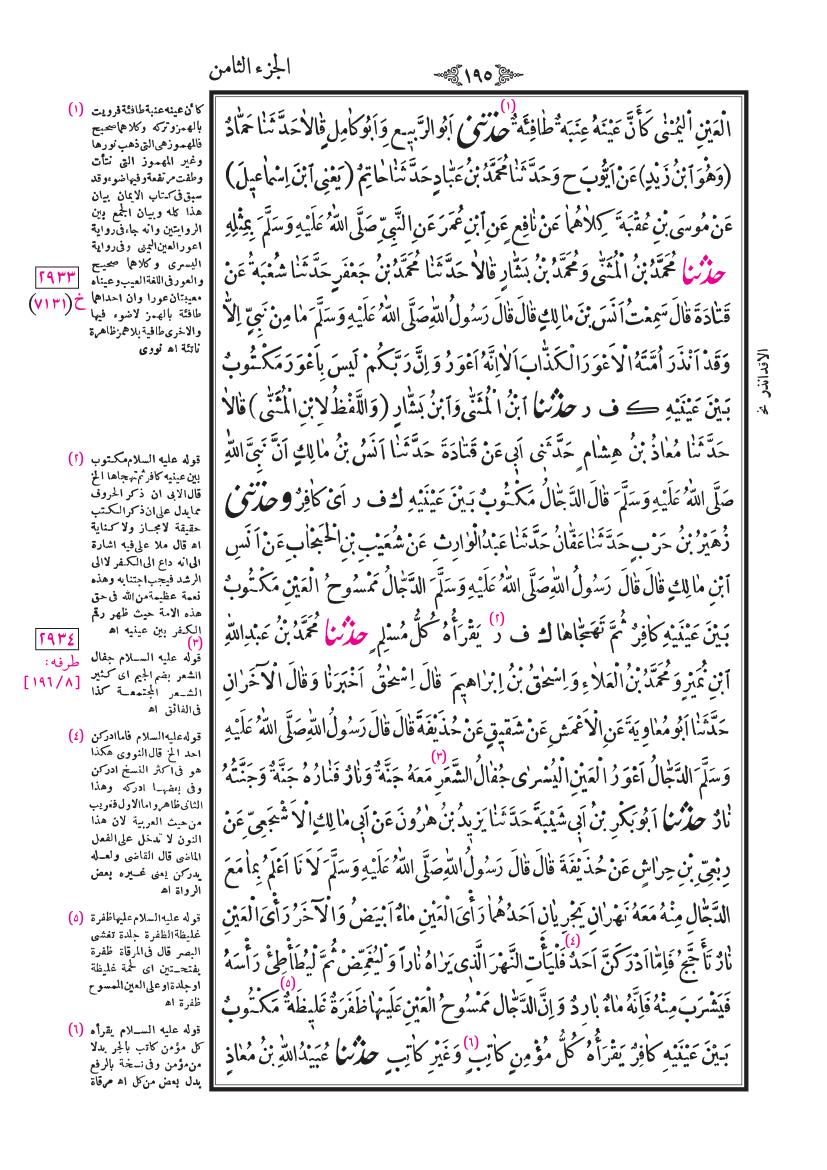 الجزء الثامن
١٩٥
الْعَيْنِ الْيُمْنٰى كَأَنَّ عَيْنَهُ عِنَبَةٌ طَافِئَةٌ (١) حَدَّثَنِي اَبُو الرَّبِيعِ وَاَبُو كَامِلٍ قَالاَ حَدَّثَنَا حَمَّادٌ
(وَهُوَ ابْنُ زَيْدٍ) عَنْ اَيُّوبَ ح وَحَدَّثَنَا مُحَمَّدُ بْنُ عَبَّادٍ حَدَّثَنَا حَاتِمٌ (يَعْنِى ابْنَ اِسْمَاعِيلَ)
عَنْ مُوسَى بْنِ عُقْبَةَ كِلاَهُمَا عَنْ نَافِعٍ عَنِ ابْنِ عُمَرَ عَنِ النَّبِيِّ صَلَّى اللهُ عَلَيْهِ وَسَلَّمَ بِمِثْلِهِ
حَدَّثَنَا مُحَمَّدُ بْنُ الْمُثَنّٰى وَمُحَمَّدُ بْنُ بَشَّارٍ قَالاَ حَدَّثَنَا مُحَمَّدُ بْنُ جَعْفَرٍ حَدَّثَنَا شُعْبَةُ عَنْ
قَتَادَةَ قَالَ سَمِعْتُ اَنَسَ بْنَ مَالِكٍ قَالَ قَالَ رَسُولُ اللهِ صَلَّى اللهُ عَلَيْهِ وَسَلَّمَ مَا مِنْ نَبِيٍّ اِلاَّ
وَقَدْ اَنْذَرَ اُمَّتَهُ الْاَعْوَرَ الْكَذَّابَ اَلاَ اِنَّهُ اَعْوَرُ وَاِنَّ رَبَّكُمْ لَيْسَ بِاَعْوَرَ مَكْتُوبٌ
بَيْنَ عَيْنَيْهِ ك ف ر حَدَّثَنَا ابْنُ الْمُثَنّٰى وَابْنُ بَشَّارٍ (وَاللَّفْظُ لِابْنِ الْمُثَنّٰى) قَالاَ
حَدَّثَنَا مُعَاذُ بْنُ هِشَامٍ حَدَّثَنِى اَبِي عَنْ قَتَادَةَ حَدَّثَنَا اَنَسُ بْنُ مَالِكٍ اَنَّ نَبِيَّ اللهِ
صَلَّى اللهُ عَلَيْهِ وَسَلَّمَ قَالَ الدَّجَّالُ مَكْتُوبٌ بَيْنَ عَيْنَيْهِ ك ف ر اَىْ كَافِرٌ وَحَدَّثَنِي
زُهَيْرُ بْنُ حَرْبٍ حَدَّثَنَا عَفَّانُ حَدَّثَنَا عَبْدُ الْوَارِثِ عَنْ شُعَيْبِ بْنِ الْحَبْحَابِ عَنْ اَنَسِ
ابْنِ مَالِكٍ قَالَ قَالَ رَسُولُ اللهِ صَلَّى اللهُ عَلَيْهِ وَسَلَّمَ الدَّجَّالُ مَمْسُوحُ الْعَيْنِ مَكْتُوبٌ
بَيْنَ عَيْنَيْهِ كَافِرٌ ثُمَّ تَهَجَّاهَا ك ف ر (٢) يَقْرَأُهُ كُلُّ مُسْلِمٍ حَدَّثَنَا مُحَمَّدُ بْنُ عَبْدِ اللهِ
ابْنِ نُمَيْرٍ وَمُحَمَّدُ بْنُ الْعَلاَءِ وَاِسْحٰقُ بْنُ اِبْرَاهِيمَ قَالَ اِسْحٰقُ اَخْبَرَنَا وَقَالَ الْآخَرَانِ
حَدَّثَنَا اَبُو مُعَاوِيَةَ عَنِ الْاَعْمَشِ عَنْ شَقِيقٍ عَنْ حُذَيْفَةَ قَالَ قَالَ رَسُولُ اللهِ صَلَّى اللهُ عَلَيْهِ
وَسَلَّمَ الدَّجَّالُ اَعْوَرُ الْعَيْنِ الْيُسْرٰى جُفَالُ الشَّعَرِ (٣) مَعَهُ جَنَّةٌ وَنَارٌ فَنَارُهُ جَنَّةٌ وَجَنَّتُهُ
نَارٌ حَدَّثَنَا اَبُو بَكْرِ بْنُ اَبِي شَيْبَةَ حَدَّثَنَا يَزِيدُ بْنُ هٰرُونَ عَنْ اَبِي مَالِكٍ الْاَشْجَعِيِّ عَنْ
رِبْعِيِّ بْنِ حِرَاشٍ عَنْ حُذَيْفَةَ قَالَ قَالَ رَسُولُ اللهِ صَلَّى اللهُ عَلَيْهِ وَسَلَّمَ لَاَنَا اَعْلَمُ بِمَا مَعَ
الدَّجَّالِ مِنْهُ مَعَهُ نَهْرَانِ يَجْرِيَانِ اَحَدُهُمَا رَأْىَ الْعَيْنِ مَاءٌ اَبْيَضُ وَالْآخَرُ رَأْىَ الْعَيْنِ
نَارٌ تَأَجَّجُ فَاِمَّا اَدْرَكَنَّ اَحَدٌ (٤) فَلْيَأْتِ النَّهْرَ الَّذِي يَرَاهُ نَاراً وَلْيُغَمِّضْ ثُمَّ لْيُطَأْطِئْ رَأْسَهُ
فَيَشْرَبَ مِنْهُ فَاِنَّهُ مَاءٌ بَارِدٌ وَاِنَّ الدَّجَّالَ مَمْسُوحُ الْعَيْنِ عَلَيْهَا ظَفَرَةٌ غَلِيظَةٌ (٥) مَكْتُوبٌ
بَيْنَ عَيْنَيْهِ كَافِرٌ يَقْرَأُهُ كُلُّ مُؤْمِنٍ كَاتِبٍ (٦) وَغَيْرِ كَاتِبٍ حَدَّثَنَا عُبَيْدُ اللهِ بْنُ مُعَاذٍ
الا قد انذر نخ
(١) كأن عينه عنبة طافئة فرويت
بالهمز وتركه وكلاهما صحيح
فالمهموزهى التى ذهب نورها
وغير المهموز التى نتأت
وطفت مرتفعة وفيها ضوء وقد
سبق فى كتاب الايمان بيان
هذا كله وبيان الجمع بين
الروايتين وانه جاء فى رواية
اعور العين اليمنى وفى رواية
اليسرى وكلاهما صحيح
والعور فى اللغة العيب وعيناه
معيبتان عورا وان احداهما
طافئة بالهمز لاضوء فيها
والاخرى طافية بلا همز ظاهرة
ناتئة اه نووى
٢٩٣٣
خ (٧١٣١)
(٢) قوله عليه السلام مكتوب
بين عينيه كافر ثم تهجاها الخ
قال الابى ان ذكر الحروف
مما يدل على ان ذكر الكتب
حقيقة لا مجاز ولا كناية
اه قال ملا على فيه اشارة
الى انه داع الى الكفر لا الى
الرشد فيجب اجتنابه وهذه
نعمة عظيمة من الله فى حق
هذه الامة حيث ظهر رقم
الكفر بين عينيه اه
٢٩٣٤
طرفه:
[١٩٦/٨]
(٣) قوله عليه السلام جفال
الشعر بضم الجيم اى كثير
الشعر المجتمعة كذا
فى الفائق اه
(٤) قوله عليه السلام فاما ادركن
احد الخ قال النووى هكذا
هو فى اكثر النسخ ادركن
وفى بعضها ادركه وهذا
الثانى ظاهر واما الاول فغريب
من حيث العربية لان هذا
النون لا تدخل على الفعل
الماضى قال القاضى ولعله
يدركن يعنى غيره بعض
الرواة اه
(٥) قوله عليه السلام عليها ظفرة
غليظة الظفرة جلدة تغشى
البصر قال فى المرقاة ظفرة
بفتحتين اى لحمة غليظة
او جلدة او على العين الممسوح
ظفرة اه
(٦) قوله عليه السلام يقرأه
كل مؤمن كاتب بالجر بدلا
من مؤمن وفى نسخة بالرفع
بدل بعض من كل اه مرقاة